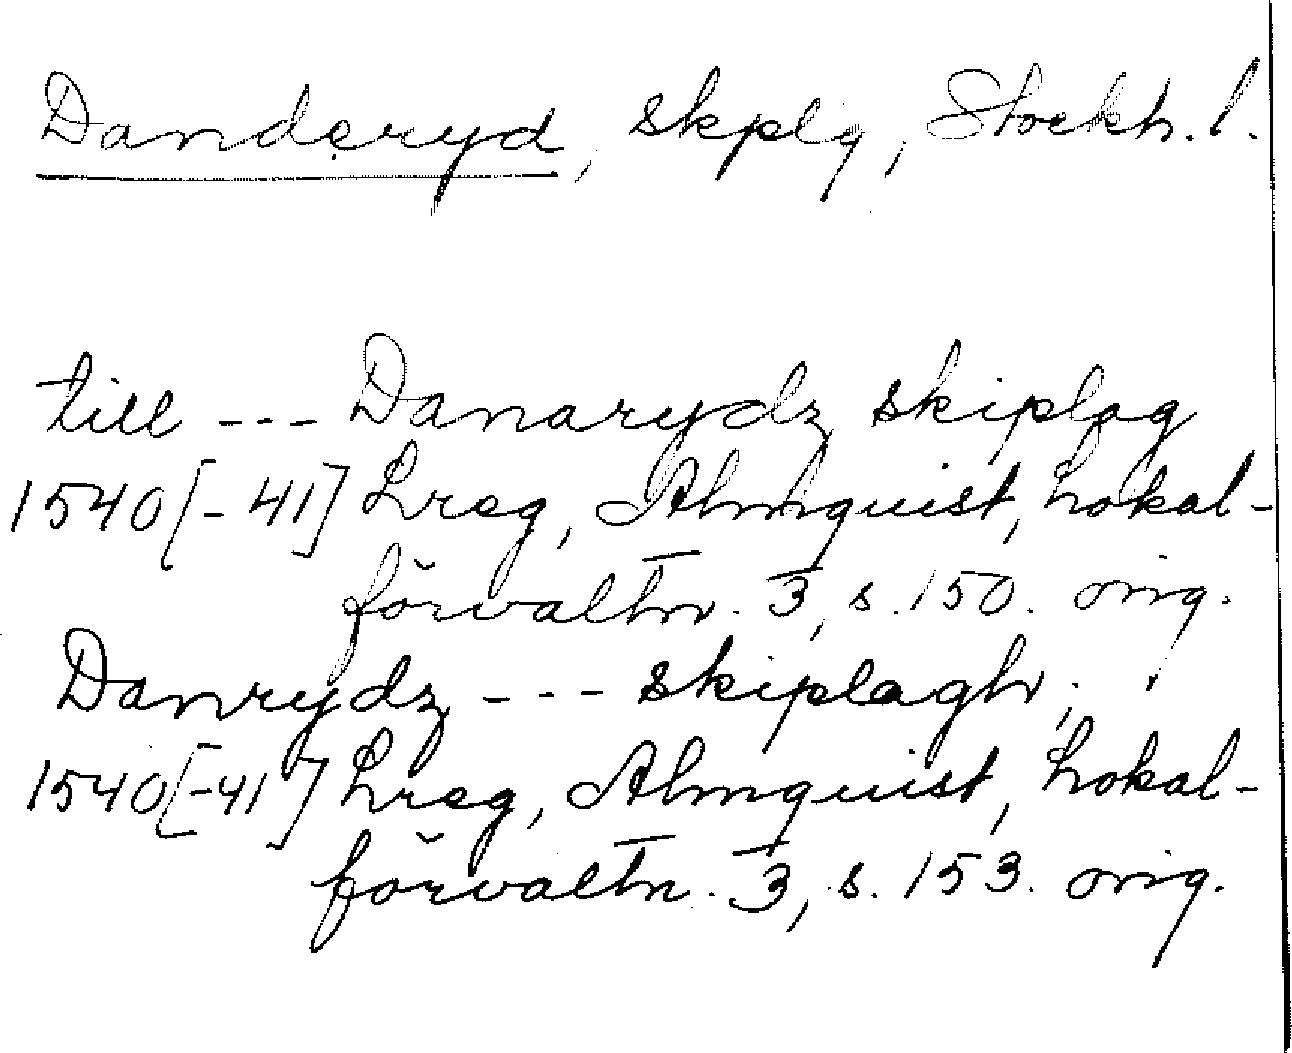 Danderyd, skplg, Stockh. l.
till --- Danarydz skiplag
1540[-41] Lreg, Almquist, Lokal-
förvaltn. 3, s. 150. orig.
Danrydz --- skiplagh,
1540[-41] Lreg, Almquist, Lokal-
förvaltn. 3, s. 153. orig.